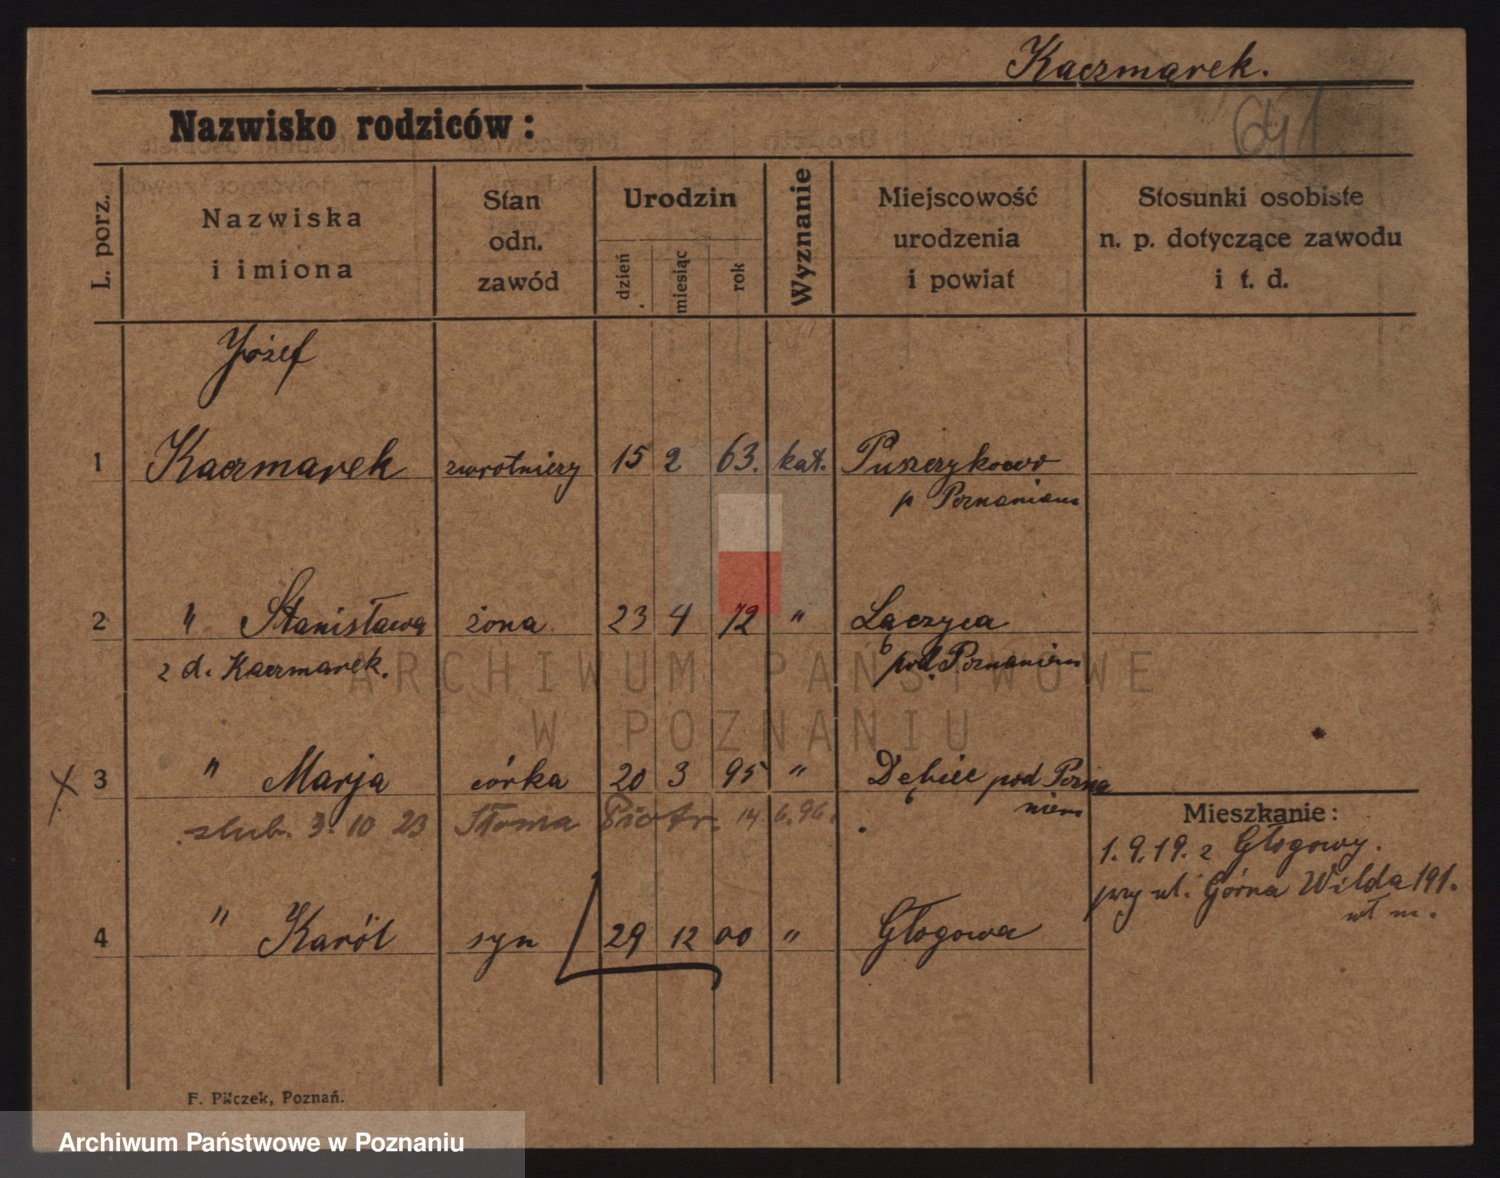 Kaczmarek.
641
Nazwisko rodziców:
L. porz.
Nazwiska
i imiona
Stan
odn.
zawód
Urodzin
dzień
miesiąc
rok
Wyznanie
Miejscowość
urodzenia
i powiat
Stosunki osobiste
n. p. dotyczące zawodu
i t. d.
Józef
1 Kaczmarek zwrotniczy 15 2 63. kat. Puszczykowo
p Poznaniem
2 " Stanisława żona 23 4 72 " Łączyca
z d. Kaczmarek. pod. Poznaniem
ARCHIWUM PAŃSTWOWE
W POZNANIU
3 " Marja córka 20 3 95 " Dębiec pod Pozna
niem
ślub. 3. 10 23 Słoma Piotr. 14 6. 96.
Mieszkanie:
1. 9. 19. z Głogowy.
przy ul. Górna Wilda 191.
wł m.
4 " Karól syn 29 12 00 " Głogowa
F. Pilczek, Poznań.
Archiwum Państwowe w Poznaniu